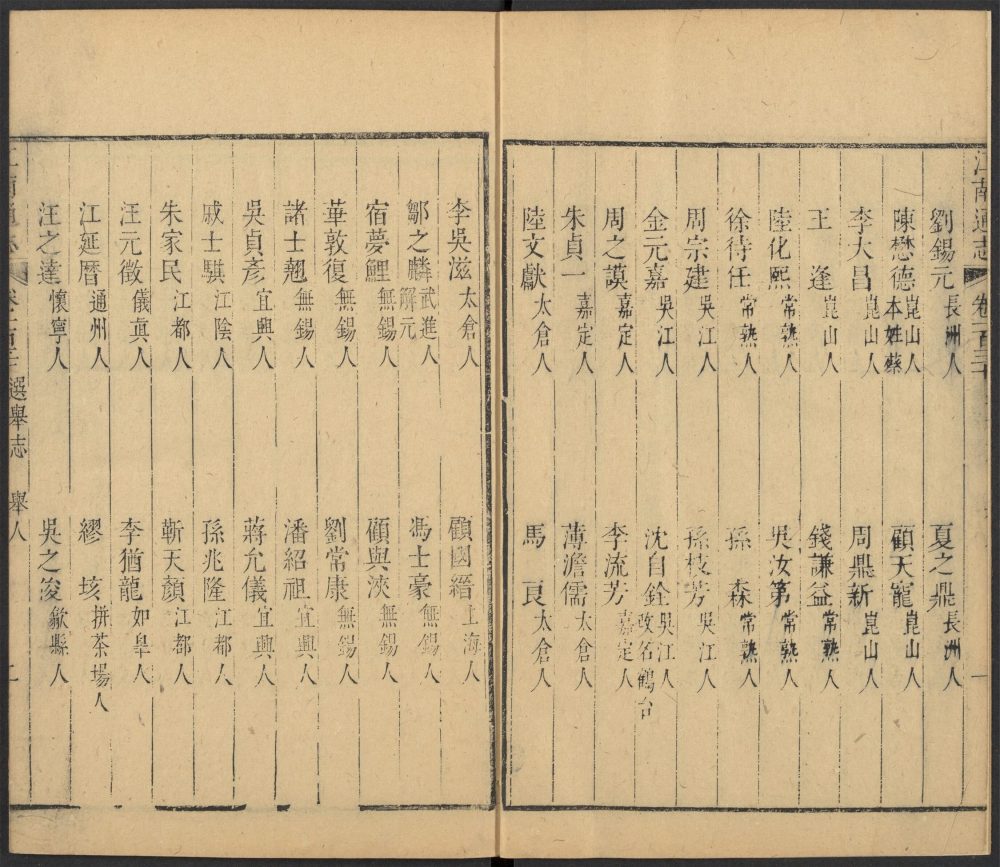 江南通志 卷一百三十 一
劉錫元 長洲人 夏之鼎 長洲人
陳懋德 崑山人 本姓蔡 顧天寵 崑山人
李大昌 崑山人 周鼎新 崑山人
王逢 崑山人 錢謙益 常熟人
陸化熙 常熟人 吳汝第 常熟人
徐待任 常熟人 孫森 常熟人
周宗建 吳江人 孫枝芳 吳江人
金元嘉 吳江人 沈自銓 吳江人 改名鶴台
周之謨 嘉定人 李流芳 嘉定人
朱貞一 嘉定人 薄澹儒 太倉人
陸文獻 太倉人 馬良 太倉人
李吳滋 太倉人 顧國縉 上海人
鄒之麟 武進人 解元 馮士豪 無錫人
宿夢鯉 無錫人 顧與浹 無錫人
華敦復 無錫人 劉常康 無錫人
諸士翹 無錫人 潘紹祖 宜興人
吳貞彥 宜興人 蔣允儀 宜興人
戚士騏 江陰人 孫兆隆 江都人
朱家民 江都人 靳天顏 江都人
汪元徵 儀真人 李猶龍 如皋人
江延曆 通州人 繆垓 拼茶場人
汪之達 懷寧人 吳之俊 歙縣人
選舉志 舉人 二